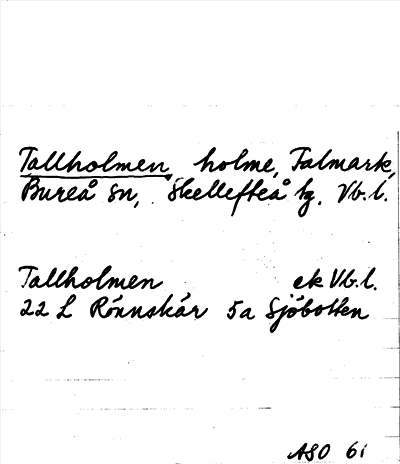 Tallholmen, holme, Falmark,
Bureå sn, Skellefteå tg. Vb.l.
Tallholmen ek Vb.l.
22 L Rönnskär 5a Sjöbotten
ASO 61